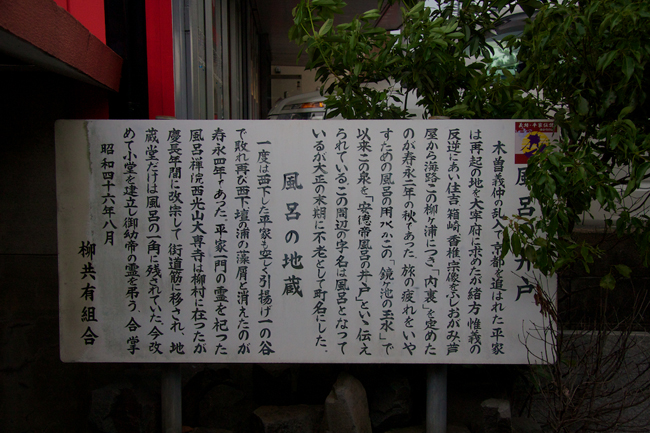 風呂の井戸
木曽義仲の乱入で京都を追はれた平家
は再起の地を大宰府に求めたが緒方惟義の
反逆にあい住吉箱崎香椎宗像をふしおがみ芦
屋から海路この柳ヶ浦につき「内裏」を定めた
のが寿永二年の秋であった。旅の疲れをいや
すための風呂の用水がこの「鏡ヶ池の玉水」で
以来この泉を「安徳帝風呂の井戸」といい伝え
られている。この周辺の字名は風呂となって
いるが大正の末期に不老として町名にした。
風呂の地蔵
一度は西下した平家も空しく引揚げ一の谷
で敗れ再び西下壇の浦の藻屑と消えたのが
寿永四年であった。平家一門の霊を祀った
風呂禅院西光山大専寺は柳村に在ったが
慶長年間に改宗して街道筋に移され、地
蔵堂だけは風呂の一角に残されていた。今改
めて小堂を建立し御幼帝の霊を弔う。合掌
昭和四十六年八月
柳共有組合